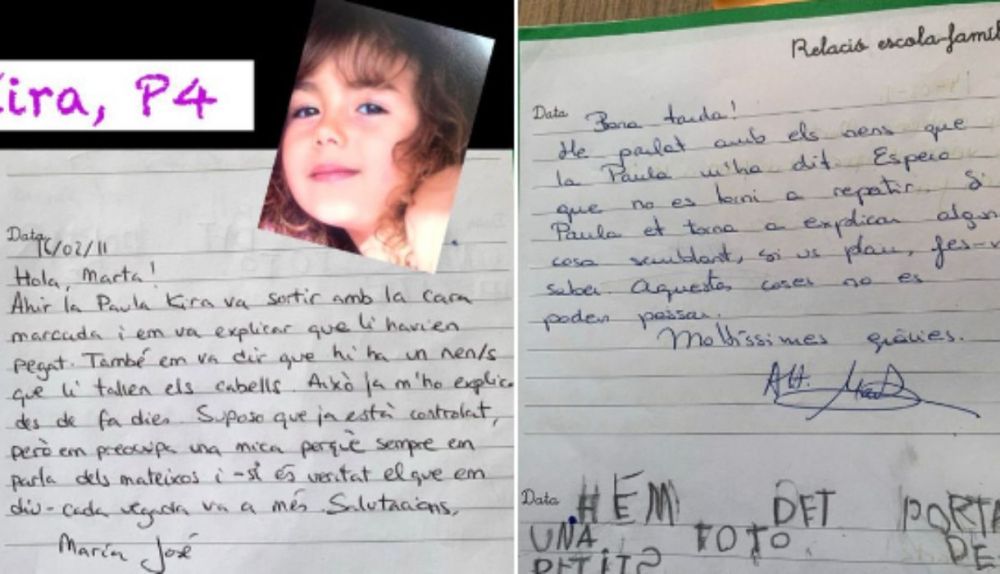 Kira, P4
Data
16/02/11
Hola, Marta!
Ahir la Paula Kira va sortir amb la cara
marcada i em va explicar que li havien
pegat. També em va dir que hi ha un nen/s
que li tallen els cabells. Això ja m'ho explica
des de fa dies. Suposo que ja està controlat,
però em preocupa una mica perquè sempre em
parla dels mateixos i -si és veritat el que em
diu- cada vegada va a més. Salutacions,
María José
Relació escola-famíl
Data Bona tarda!
He parlat amb els nens que
la Paula m'ha dit. Espero
que no es torni a repetir. Si
Paula et torna a explicar alguna
cosa semblant, si us plau, fes-
saber. Aquestes coses no es
poden passar.
Moltíssimes gràcies.
Att.
Data HEM DET PORTA
UNA FOTO DE
PETITS